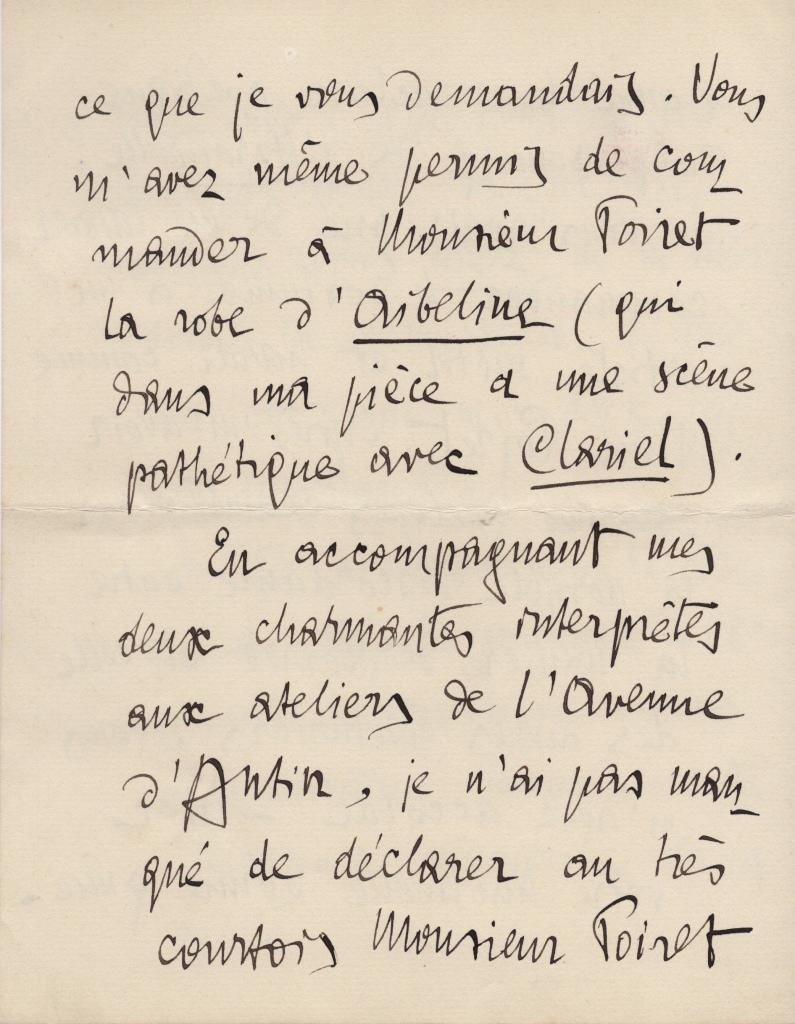 ce que je vous demandais. Vous
m'avez même permis de com
mander à Monsieur Poiret
la robe d'Asbeline (qui
dans ma pièce a une scène
pathétique avec Clariel).
En accompagnant mes
deux charmantes interprètes
aux ateliers de l'Avenue
d'Antin, je n'ai pas man
qué de déclarer au très
courtois Monsieur Poiret